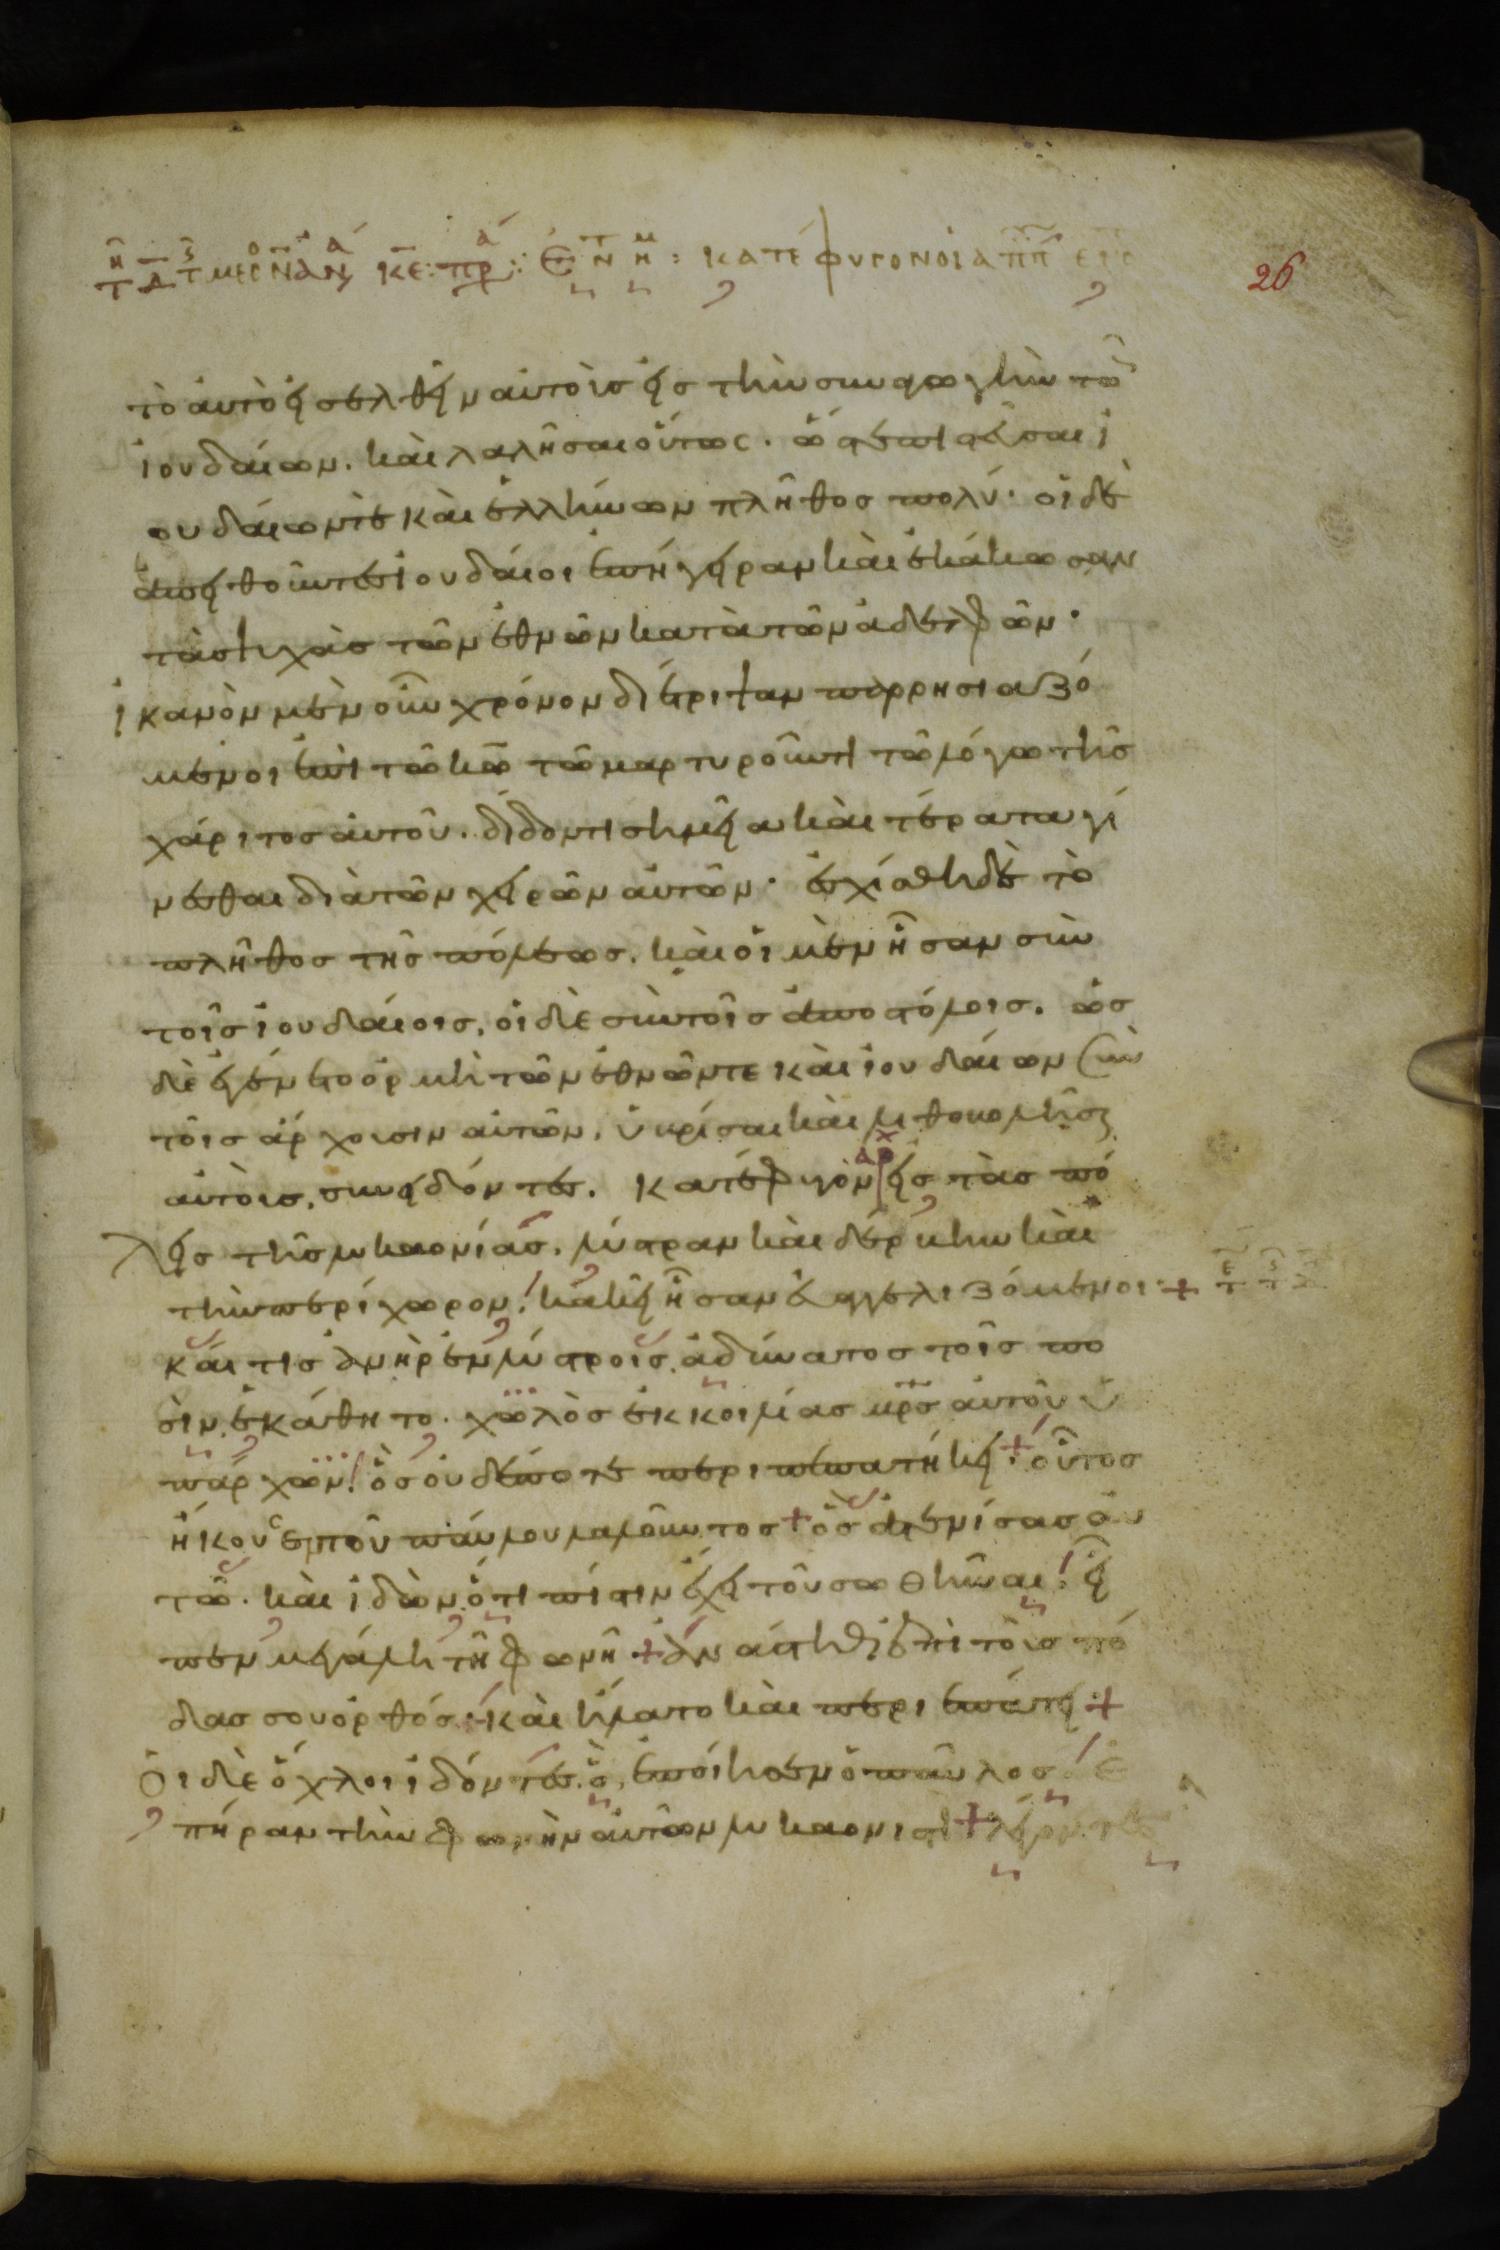 κατέφυγον οἱ αππ
26
τὸ αὐτὸ εἰσελθεῖν αὐτοὺς εἰς τὴν συναγωγὴν τῶ
ἰουδαίων. καὶ λαλῆσαι οὕτως. ὥστε πιστεῦσαι ἰ
ουδαίων τε καὶ ἑλλήνων πλῆθος πολύ· οἱ δὲ
ἀπειθοῦντες ἰουδαῖοι ἐπήγειραν καὶ ἐκάκωσαν
τὰς ψυχὰς τῶν ἐθνῶν κατὰ τῶν ἀδελφῶν·
ἱκανὸν μὲν οὖν χρόνον διέτριψαν παρρησιαζό
μενοι ἐπὶ τῶ κω τῶ μαρτυροῦντι τῶ λόγω τῆς
χάριτος αὐτοῦ. διδόντι σημεῖα καὶ τέρατα γί
νεσθαι διὰ τῶν χειρῶν αὐτῶν· ἐσχίσθη δὲ τὸ
πλῆθος τῆς πόλεως. καὶ οἱ μὲν ἦσαν σὺν
τοῖς ἰουδαίοις, οἱ δὲ σὺν τοῖς ἀποστόλοις. ὡς
δὲ ἐγένετο ὁρμὴ τῶν ἐθνῶν τε καὶ ἰουδαίων σὺν
τοῖς ἄρχουσιν αὐτῶν, ὑβρίσαι καὶ λιθοβολῆσαι
αὐτοὺς, συνειδόντες. κατέφυγον εἰς τὰς πό
λεις τῆς λυκαονίας, λύστραν καὶ δέρβην καὶ
τὴν περίχωρον, κἀκεῖ ἦσαν εὐαγγελιζόμενοι· +
καί τις ἀνὴρ ἐν λύστροις ἀδύνατος τοῖς πο
σὶν ἐκάθητο. χωλὸς ἐκ κοιλίας μρς αὐτοῦ ὑ
πάρχων, ὃς οὐδέποτε περιπεπατήκει + οὗτος
ἤκουσεν τοῦ παύλου λαλοῦντος + ὃς ἀτενίσας αὐ
τῶ. καὶ ἰδὼν ὅτι πίστιν ἔχει τοῦ σωθῆναι, εἶ
πεν μεγάλη τῆ φωνῆ + ἀνάστηθι ἐπὶ τοὺς πό
δας σου ὀρθός· καὶ ἥλατο καὶ περιεπάτει +
Οἱ δὲ ὄχλοι ἰδόντες ὃ ἐποίησεν ὁ παῦλος ἐ
πῆραν τὴν φωνὴν αὐτῶν λυκαονιστὶ + λέγοντες